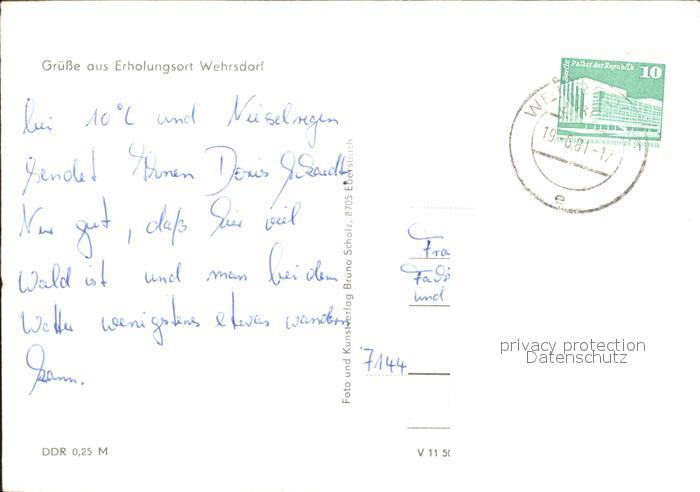 Grüße aus Erholungsort Wehrsdorf
bei 10°C und Nieselregen
sendet Ihnen Doris
Nur gut, daß hier viel
Wald ist und man bei dem
Wetter wenigstens etwas wandern
kann.
DDR 0,25 M
Foto und Kunstverlag Bruno Scholz, 8705 Ebersbach
Berlin Palast der Republik
10
19.-6.81-17
e
Fra
und
7144
V 11 50
privacy protection
Datenschutz